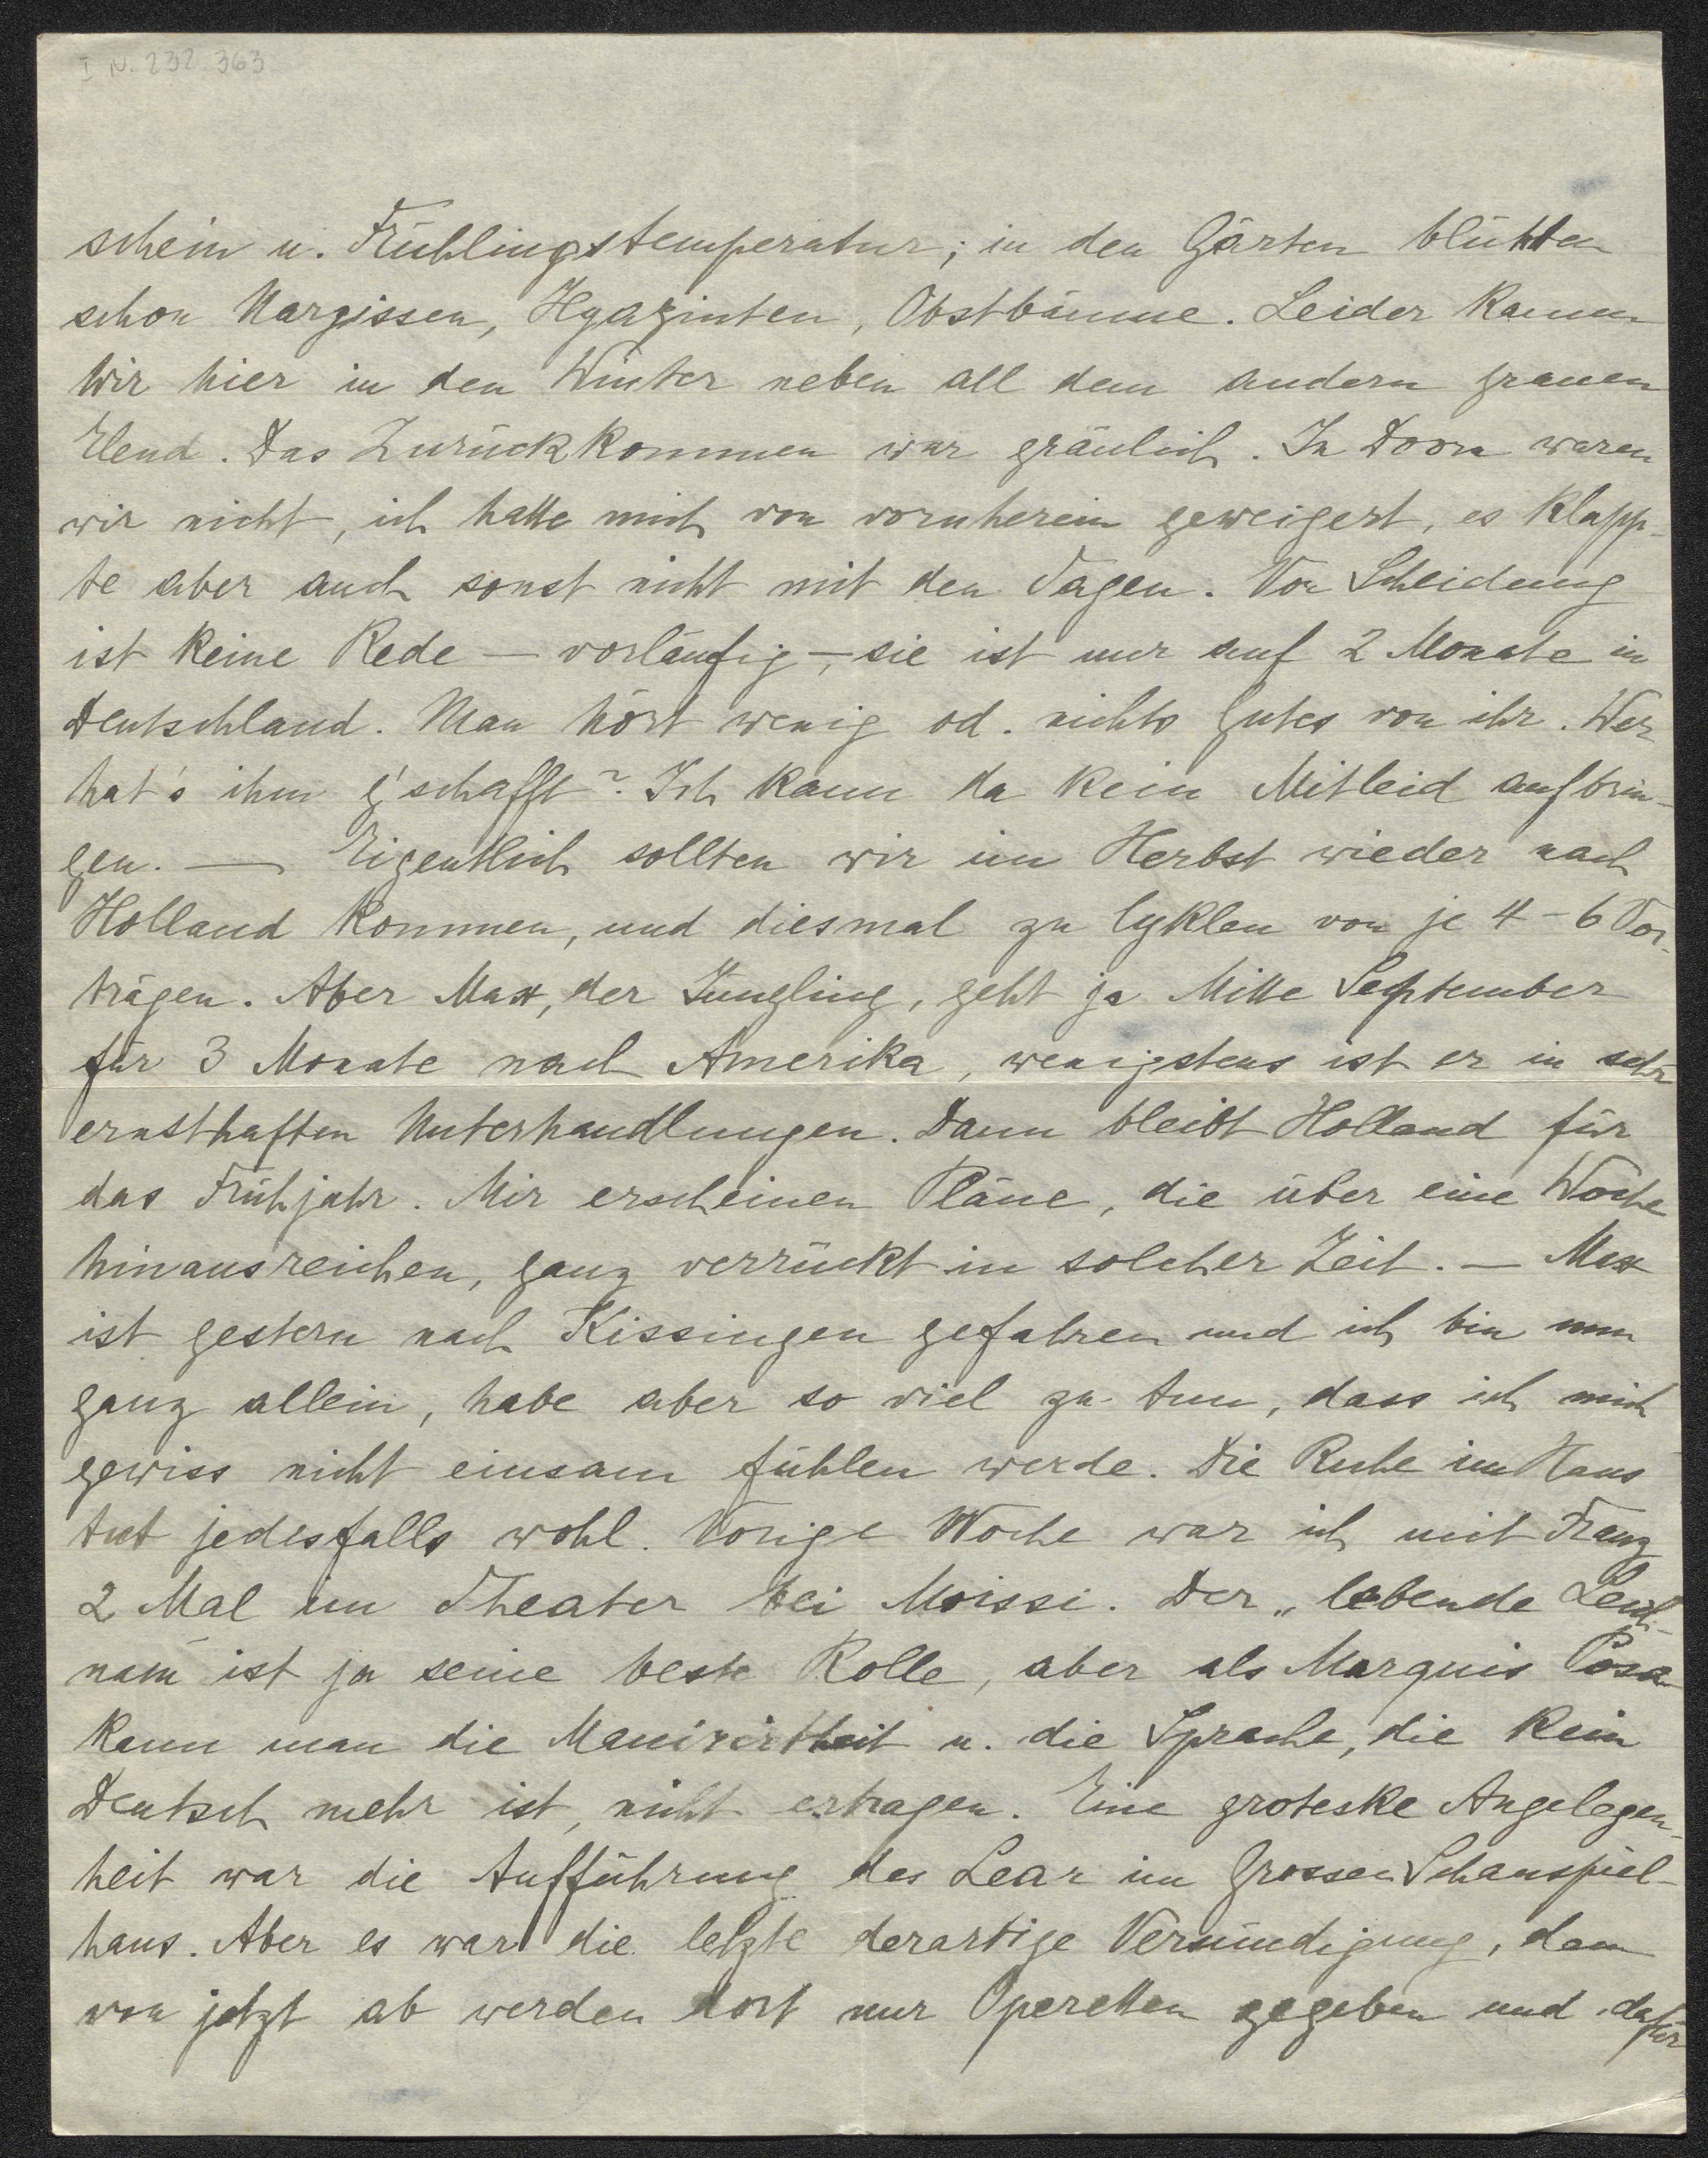 I N. 232 363
schein u. Frühlingstemperatur; in den Gärten blühten
schon Nargissen, Hyazinten, Obstbäume. Leider kamen
wir hier in den Winter neben all dem andern grauen
Elend. Das Zurückkommen war gräulich. In Doorn waren
wir nicht, ich hatte mich von vornherein geweigert, es klapp-
te aber auch sonst nicht mit den Tagen. Von Scheidung
ist keine Rede — vorläufig —, sie ist nur auf 2 Monate in
Deutschland. Man hört wenig od. nichts Gutes von ihr. Wer
hat's ihm g'schafft? Ich kann da kein Mitleid aufbrin-
gen. — Eigentlich sollten wir im Herbst wieder nach
Holland kommen, und diesmal zu Cyklen von je 4-6 Vor-
trägen. Aber Max, der Jüngling, geht ja Mitte September
für 3 Monate nach Amerika, wenigstens ist er in sehr
ernsthaften Unterhandlungen. Dann bleibt Holland für
das Frühjahr. Mir erscheinen Pläne, die über eine Woche
hinausreichen, ganz verrückt in solcher Zeit. — Max
ist gestern nach Kissingen gefahren und ich bin nun
ganz allein, habe aber so viel zu tun, dass ich mich
gewiss nicht einsam fühlen werde. Die Ruhe im Haus
tut jedesfalls wohl. Vorige Woche war ich mit Franz
2 Mal im Theater bei Moissi. Der „lebende Leich-
nam" ist ja seine beste Rolle, aber als Marquis Posa
kann man die Manirirtheit u. die Sprache, die kein
Deutsch mehr ist, nicht ertragen. Eine groteske Angelegen-
heit war die Aufführung des Lear im Grossen Schauspiel-
haus. Aber es war die letzte derartige Versündigung, denn
von jetzt ab werden dort nur Operetten gegeben und dafür